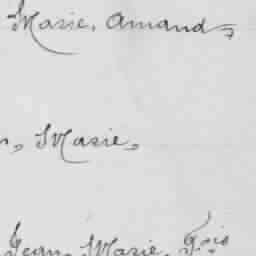 Marie, Amand,
, Marie,
Jean, Marie,